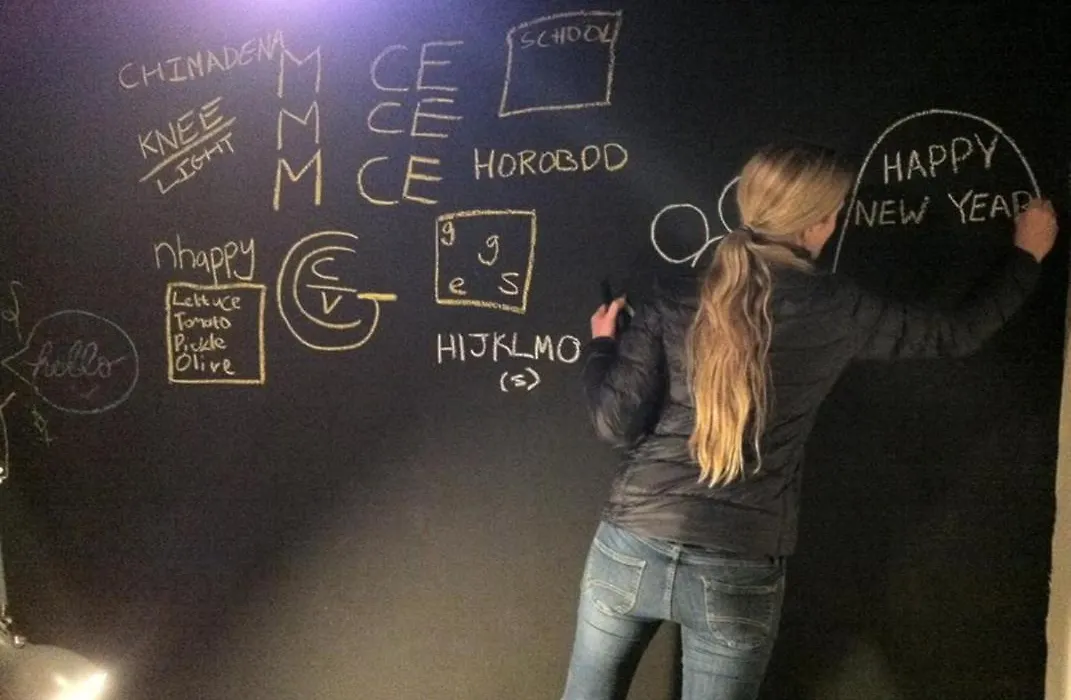 CHIMADENA
M CE
M CE
M CE
SCHOOL
KNEE
LIGHT
HOROBOD
HAPPY
NEW YEAR
nhappy
Lettuce
Tomato
Pickle
Olive
C
V
g
g
e
s
HIJKLMO
(s)
hello